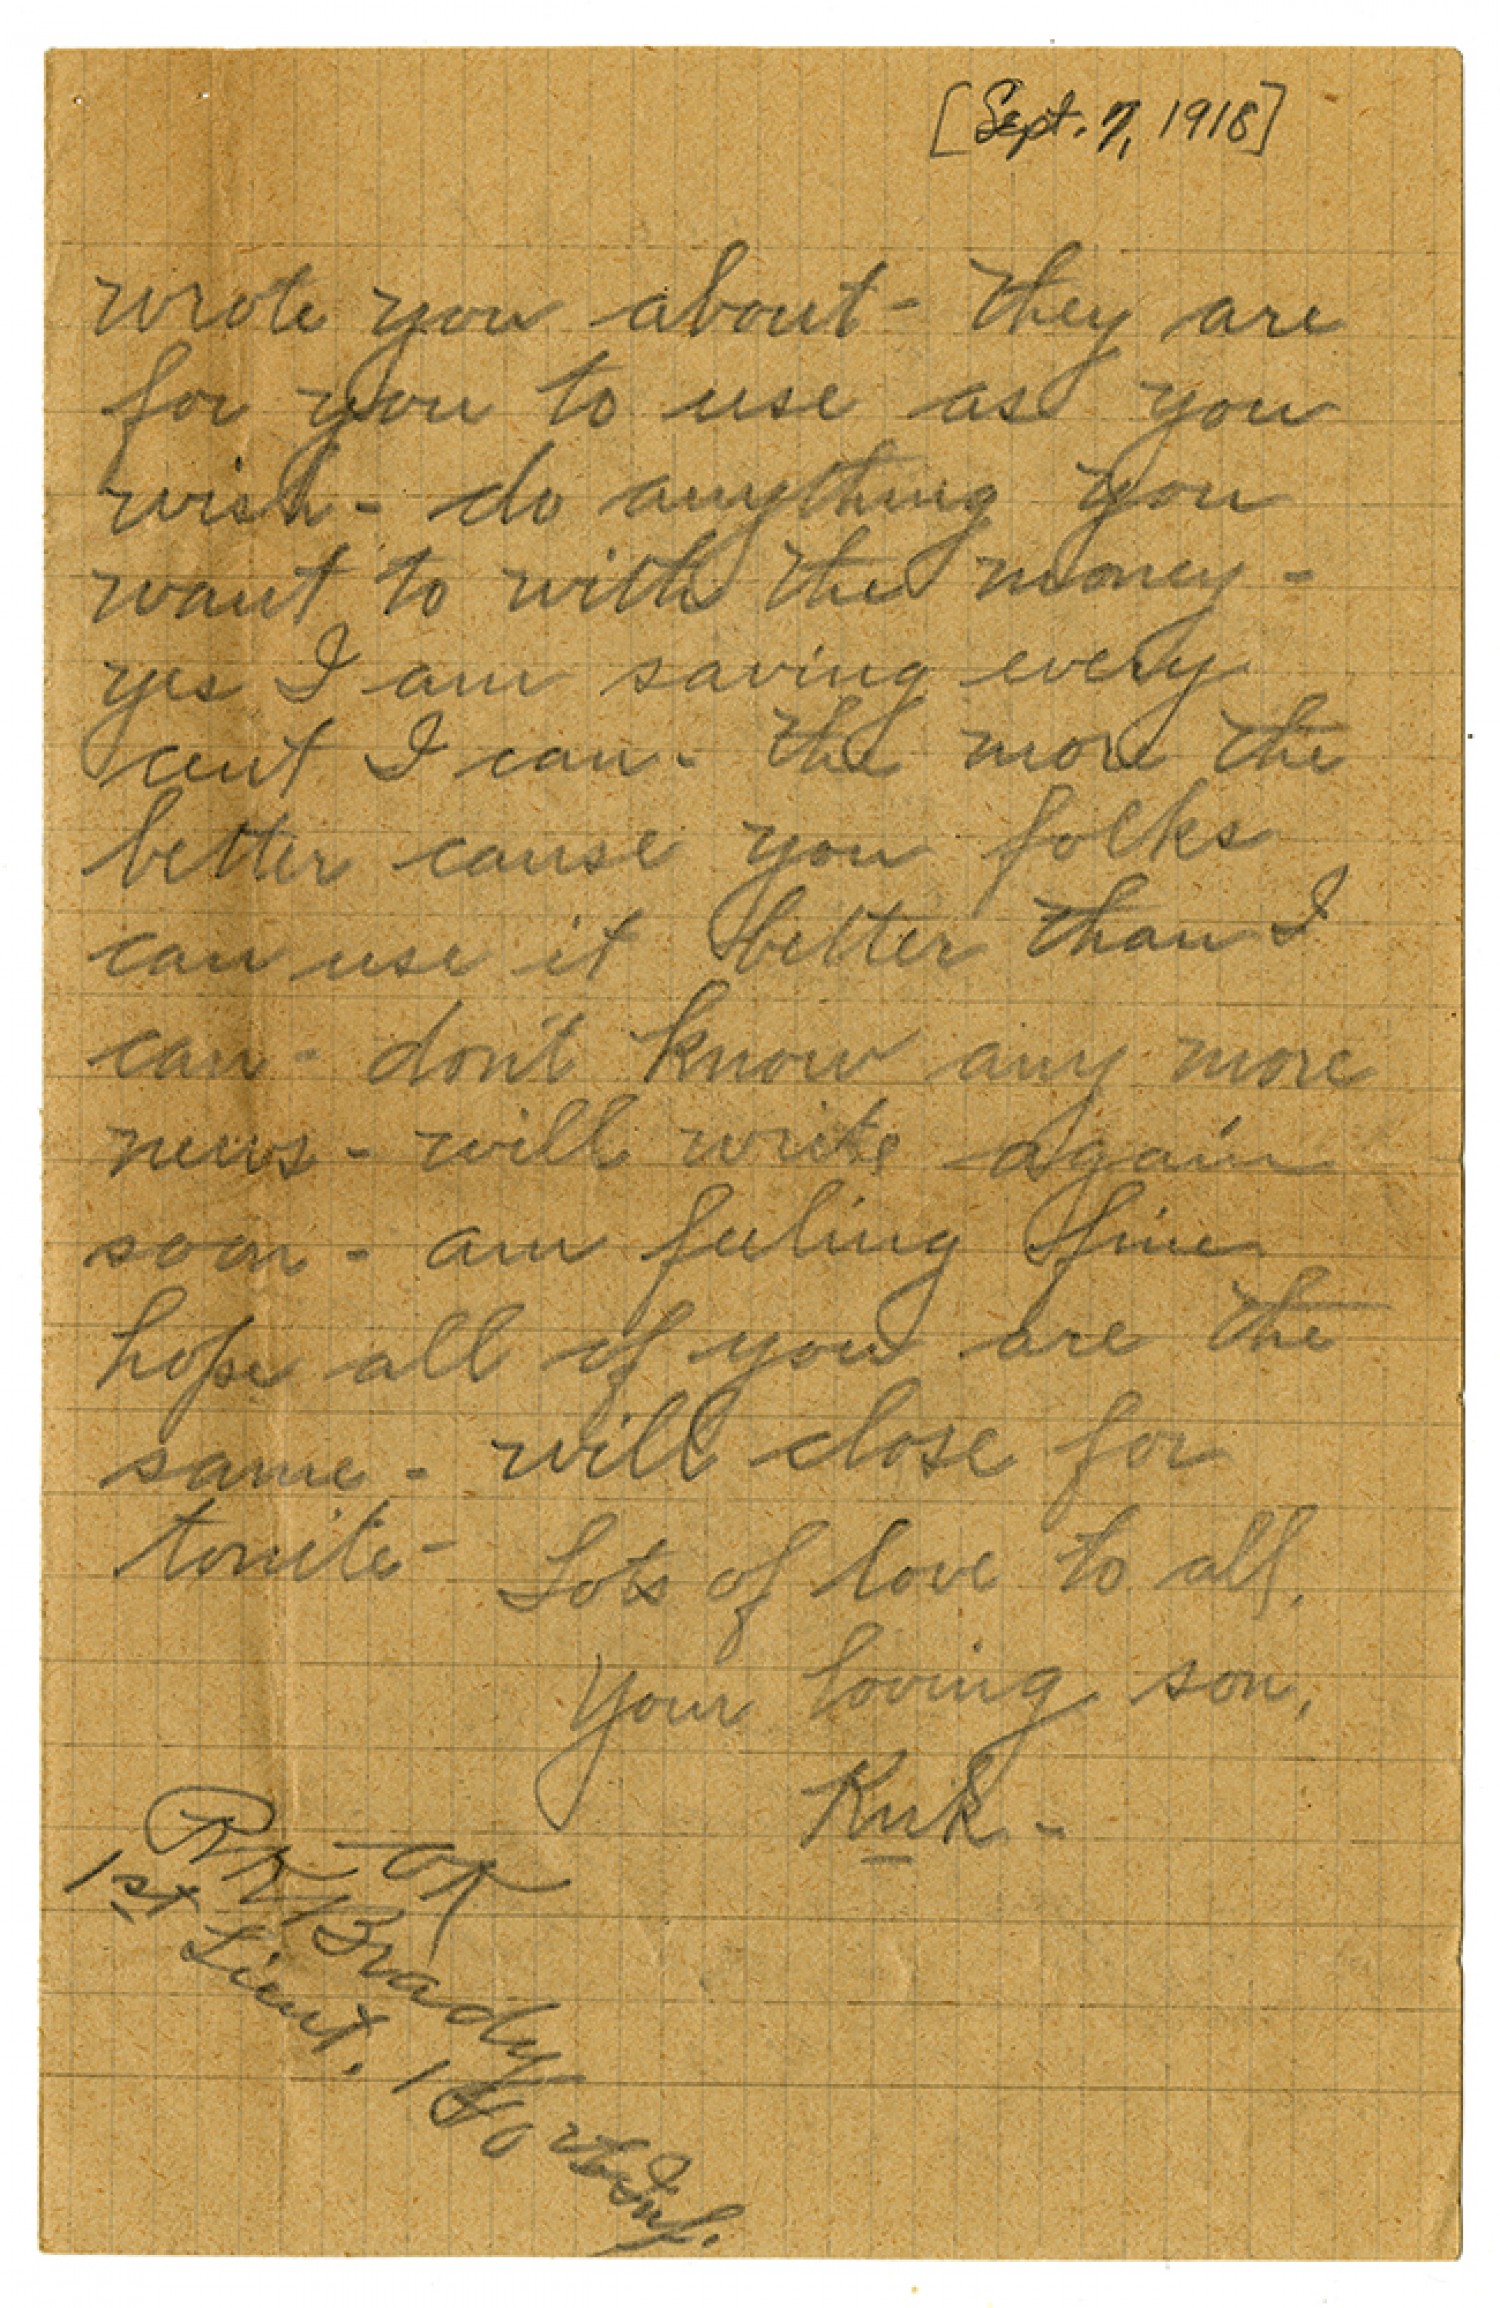 [Sept. 7, 1918]
wrote you about - they are
for you to use as you
wish - do anything you
want to with the money -
yes I am saving every
cent I can - the more the
better cause you folks
can use it better than I
can - don't know any more
news - will write again
soon - am feeling fine
hope all of you are the
same - will close for
tonite - Lots of love to all.
Your loving son,
Kirk -
OK
Brady
1st Lieut. Inf.